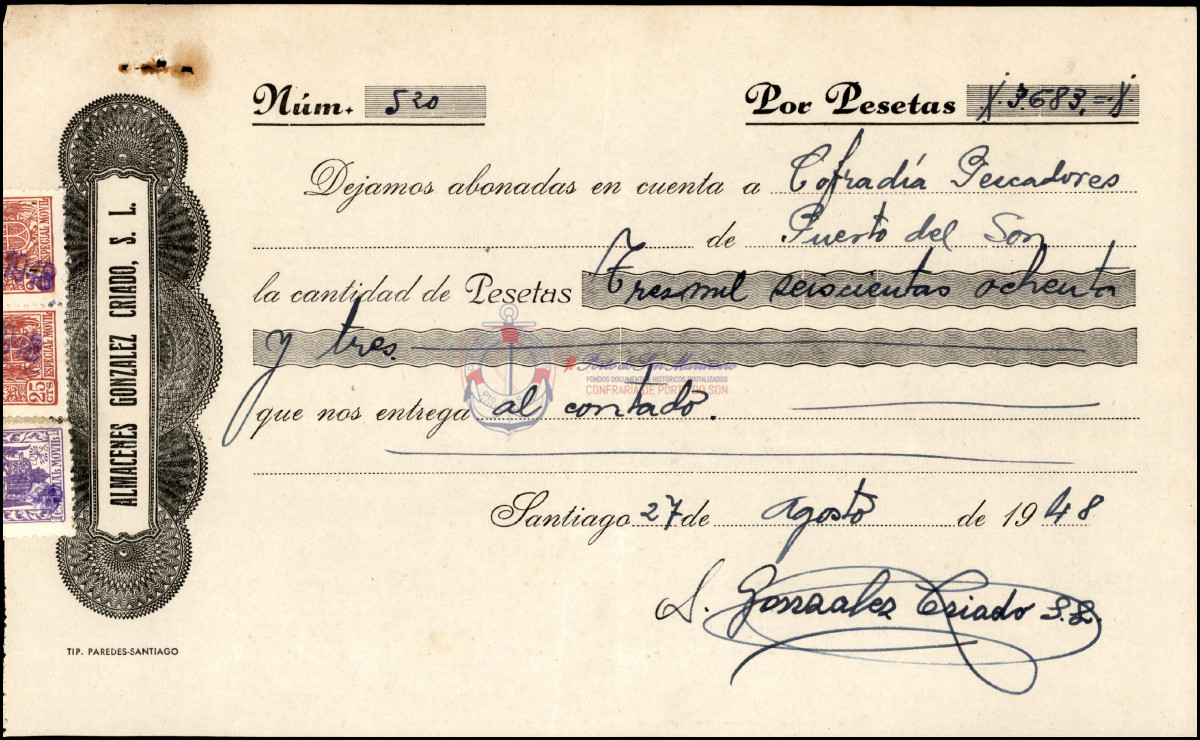 Núm. 520
Por Pesetas 3.683,=
Dejamos abonadas en cuenta a Cofradía Pescadores
de Puerto del Son
la cantidad de Pesetas Tres mil seiscientas ochenta
y tres.
que nos entrega al contado.
Santiago 27 de agosto de 1948
González Criado S.L.
ALMACENES GONZALEZ CRIADO, S. L.
25 Cs ESPECIAL MOVIL
25 Cs ESPECIAL MOVIL
TIP. PAREDES-SANTIAGO
Porto do Son Mariñeiro
FONDOS DOCUMENTAIS HISTÓRICOS DIXITALIZADOS
CONFRARÍA DE PORTO DO SON